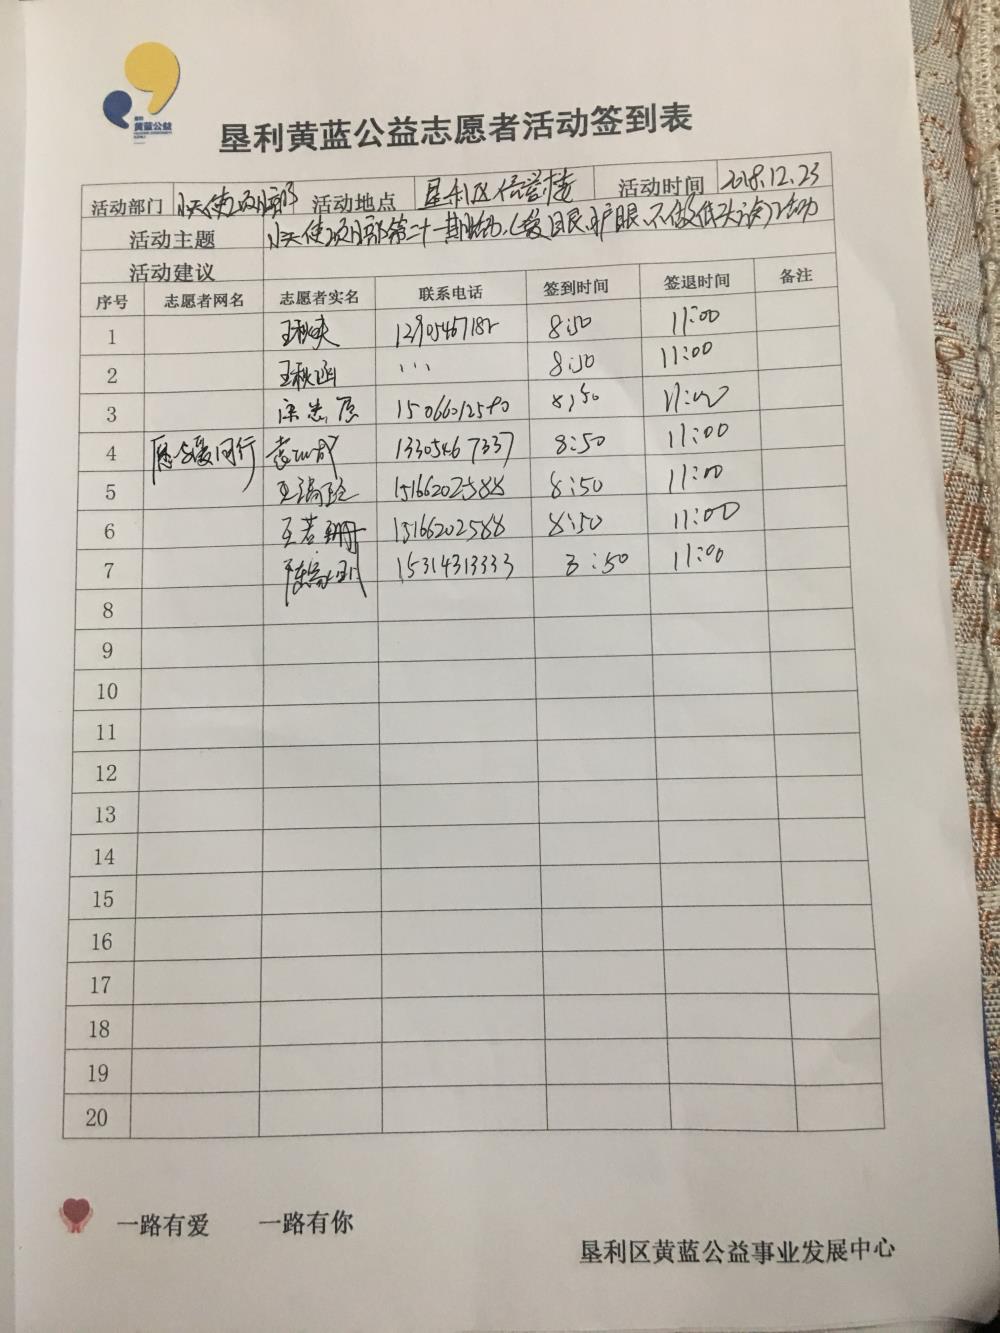 黄蓝公益
垦利黄蓝公益志愿者活动签到表
活动部门 小天使项目部 活动地点 垦利区信誉楼 活动时间 2018.12.23
活动主题 小天使项目部第二十一期活动《爱目民、护眼、不做低头族》活动
活动建议
序号 志愿者网名 志愿者实名 联系电话 签到时间 签退时间 备注
1 8:50 11:00
2 王秋函 ... 8:50 11:00
3 15066012580 8:50 11:00
4 愿与爱同行 13305467337 8:50 11:00
5 15166202588 8:50 11:00
6 王若珊 15166202588 8:50 11:00
7 15314313333 8:50 11:00
8
9
10
11
12
13
14
15
16
17
18
19
20
一路有爱 一路有你
垦利区黄蓝公益事业发展中心